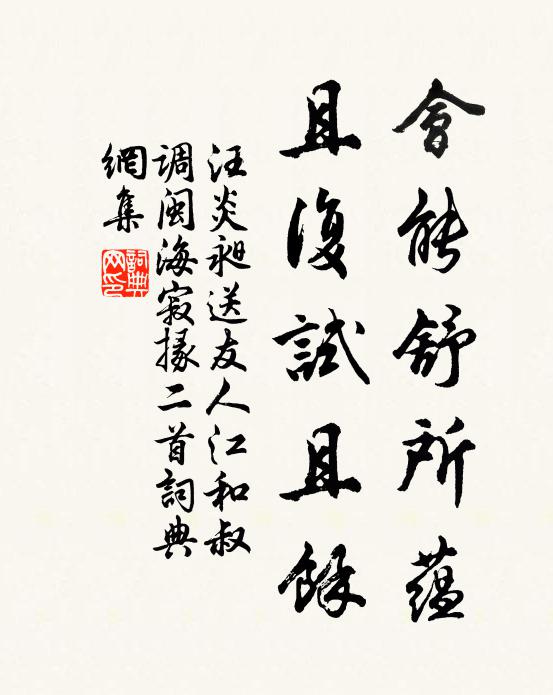 會能舒所蕴
且復試且餘
汪炎昶送友人江和叔
调闽海寂掾二首詞典
網集
詞典网印